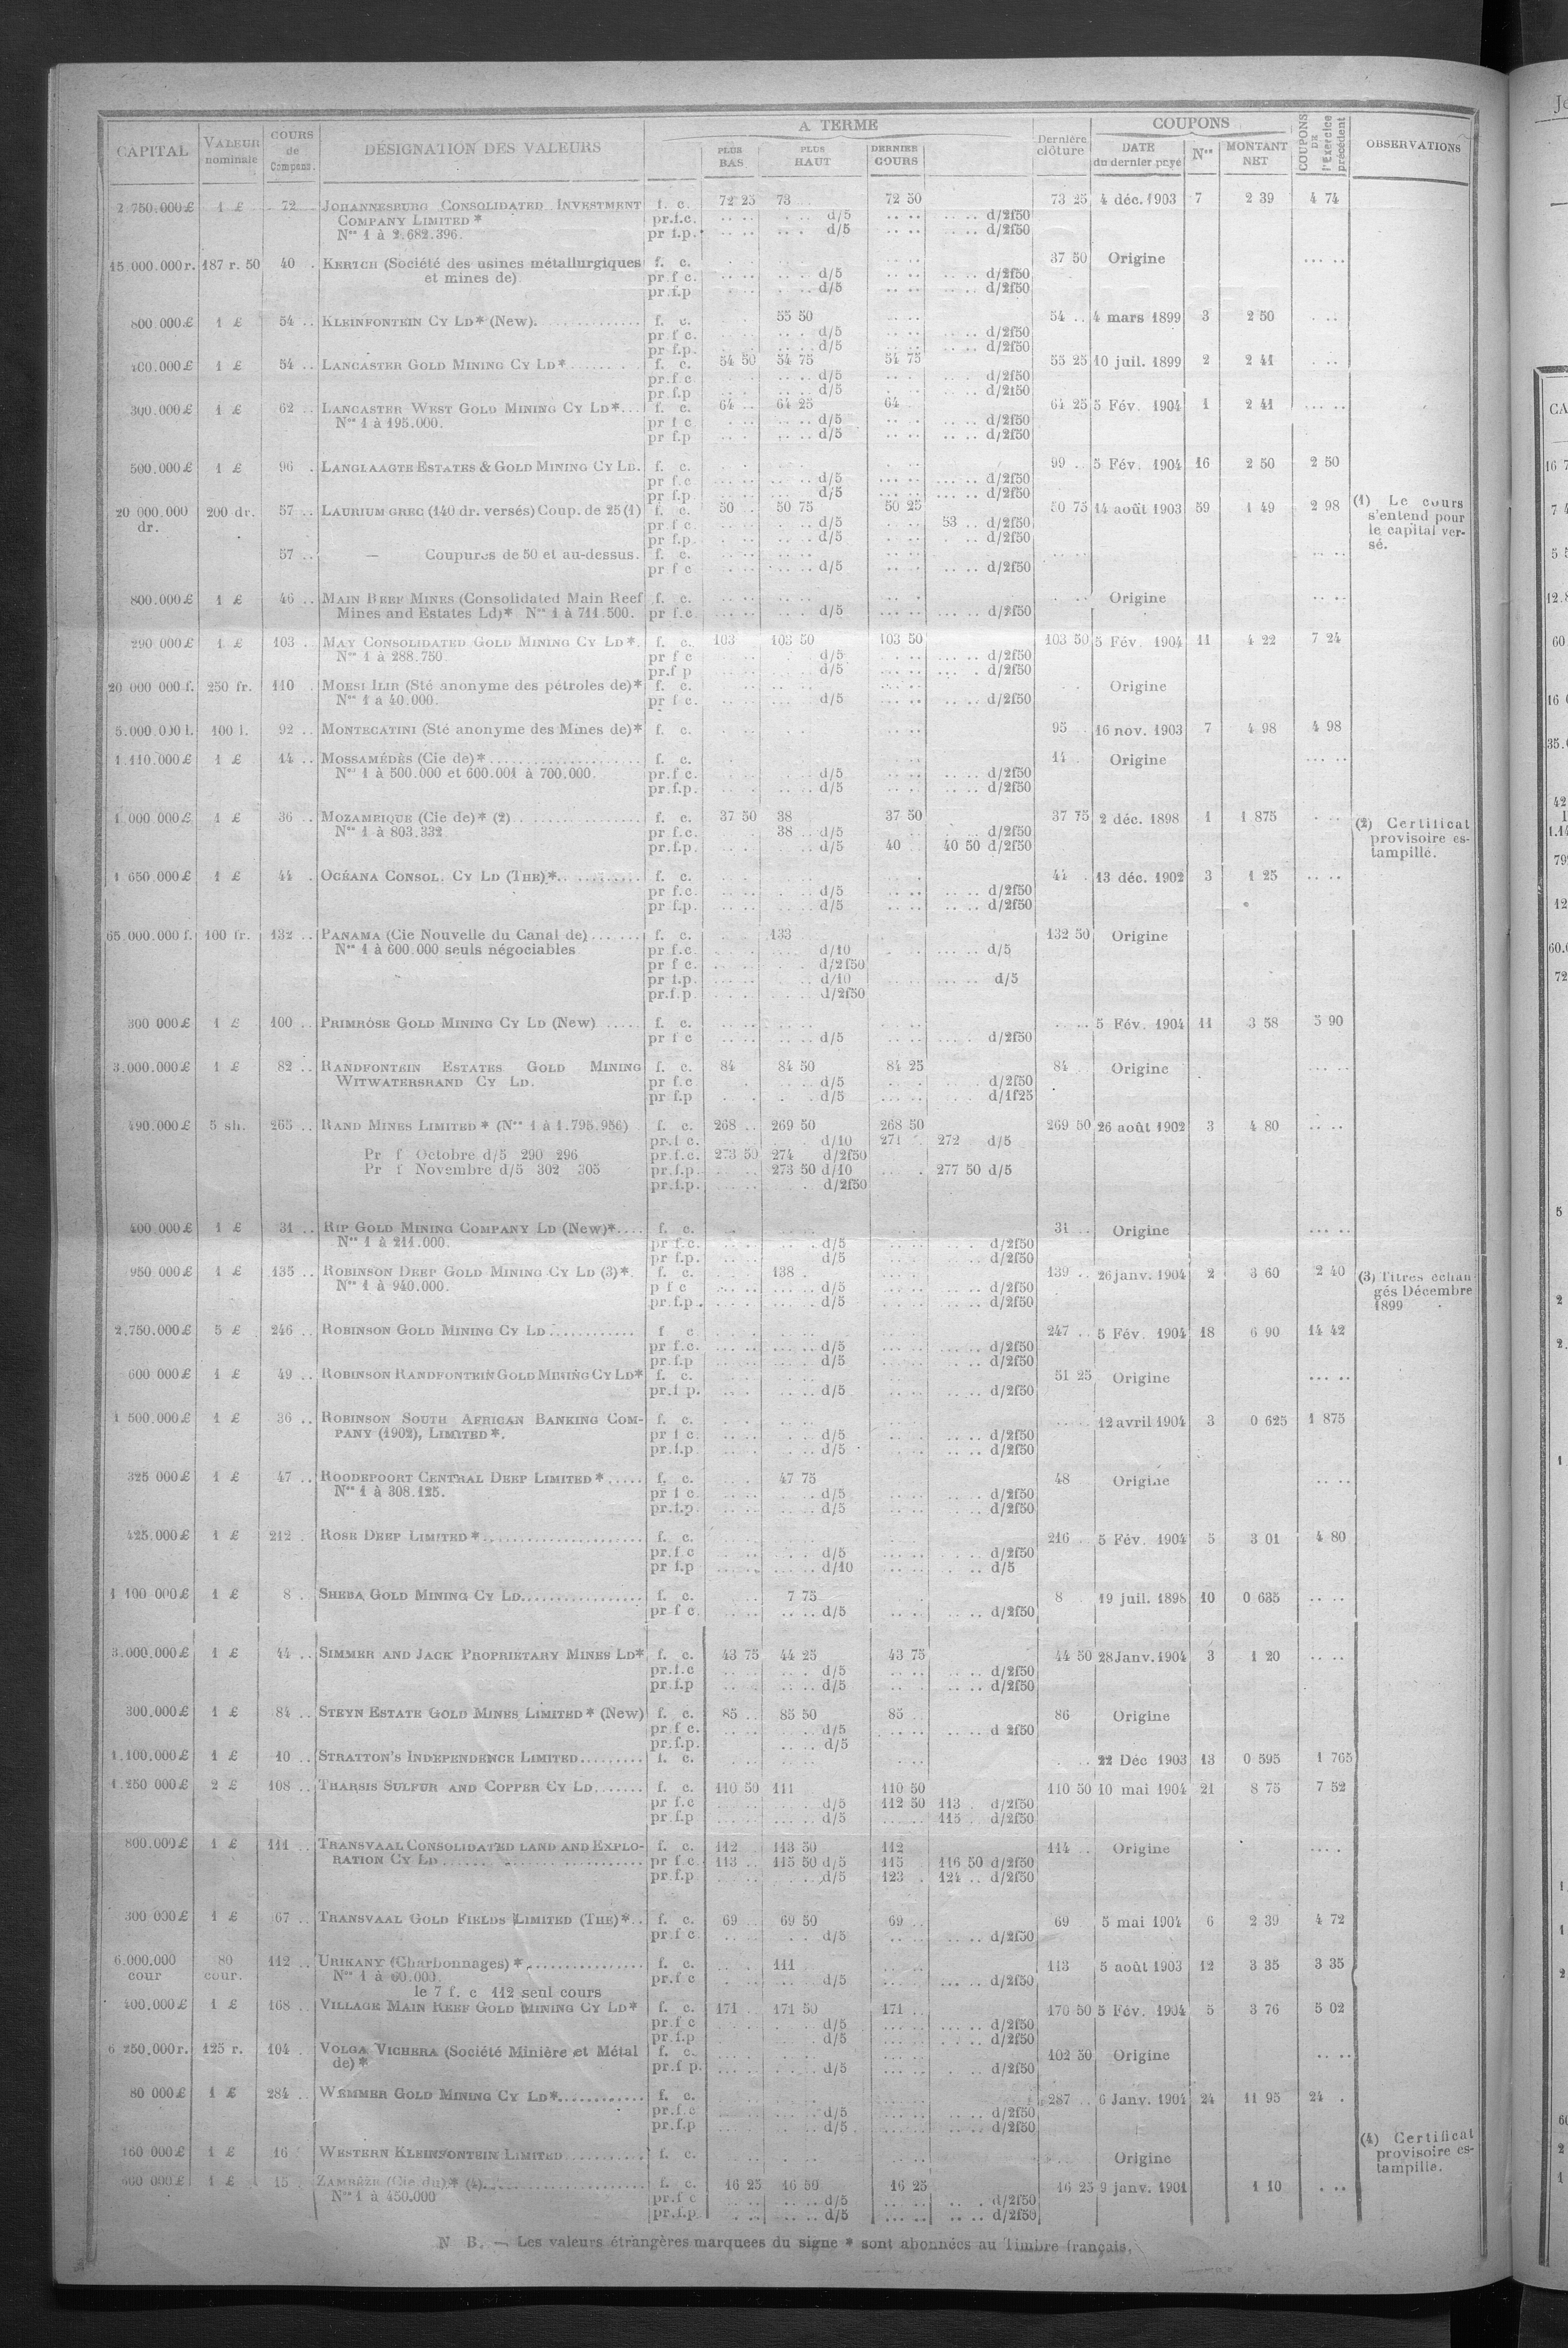 CAPITAL VALEUR nominale COURS de Compens. DÉSIGNATION DES VALEURS A TERME PLUS BAS PLUS HAUT DERNIER COURS Dernière clôture COUPONS DATE du dernier payé Nos MONTANT NET COUPONS DE l'Exercice précédent OBSERVATIONS
2 750.000 £ 1 £ 72 JOHANNESBURG CONSOLIDATED INVESTMENT f. c. 72 25 73 72 50 73 25 4 déc. 1903 7 2 39 4 74
COMPANY LIMITED * pr.f.c. d/5 d/2f50
Nos 1 à 2.682.396. pr f.p. d/5 d/2f50
15.000.000 r. 187 r. 50 40 KERTCH (Société des usines métallurgiques f. c. 37 50 Origine
et mines de) pr f c. d/5 d/2f50
pr.f.p d/5 d/2f50
800.000 £ 1 £ 54 .. KLEINFONTEIN CY LD * (New). f. c. 55 50 54 .. 4 mars 1899 3 2 50
pr f c. d/5 d/2f50
pr f.p. d/5 d/2f50
400.000 £ 1 £ 54 .. LANCASTER GOLD MINING CY LD * f. c. 54 50 54 75 54 75 55 25 10 juil. 1899 2 2 41
pr.f c. d/5 d/2f50
pr.f.p d/5 d/2f50
300.000 £ 1 £ 62 .. LANCASTER WEST GOLD MINING CY LD * f. c. 64 .. 64 25 64 64 25 5 Fév. 1904 1 2 41
Nos 1 à 195.000. pr f c d/5 d/2f50
pr f.p d/5 d/2f50
500.000 £ 1 £ 96 LANGLAAGTE ESTATES & GOLD MINING CY LD. f. c. 99 .. 5 Fév. 1904 16 2 50 2 50
pr f.c d/5 d/2f50
pr f.p d/5 d/2f50
20 000.000 200 dr. 57 .. LAURIUM GREC (140 dr. versés) Coup. de 25 (1) f. c. 50 50 75 50 25 50 75 14 août 1903 59 1 49 2 98 (1) Le cours
dr. pr f c. d/5 53 .. d/2f50 s'entend pour
pr f.p. d/5 d/2f50 le capital ver-
57 .. — Coupures de 50 et au-dessus. f. c. sé.
pr f c d/5 d/2f50
800.000 £ 1 £ 46 .. MAIN REEF MINES (Consolidated Main Reef f. c. Origine
Mines and Estates Ld) * Nos 1 à 711.500. pr f.c. d/5 d/2f50
290 000 £ 1 £ 103 .. MAY CONSOLIDATED GOLD MINING CY LD *. f. c. 103 103 50 103 50 103 50 5 Fév. 1904 11 4 22 7 24
Nos 1 à 288.750. pr f c d/5 d/2f50
pr.f p d/5 d/2f50
20 000 000 f. 250 fr. 110 MOESI ILIR (Sté anonyme des pétroles de) * f. c. Origine
Nos 1 à 40.000. pr f c. d/5 d/2f50
5.000.000 l. 100 l. 92 .. MONTECATINI (Sté anonyme des Mines de) * f. c. 95 16 nov. 1903 7 4 98 4 98
1.110.000 £ 1 £ 14 .. MOSSAMÉDÈS (Cie de) * f. c. 14 Origine
Nos 1 à 500.000 et 600.001 à 700.000. pr.f c. d/5 d/2f50
pr.f.p. d/5 d/2f50
1.000 000 £ 1 £ 36 .. MOZAMBIQUE (Cie de) * (2) f. c. 37 50 38 37 50 37 75 2 déc. 1898 1 1 875 (2) Certificat
Nos 1 à 803.332 pr f.c. 38 .. d/5 d/2f50 provisoire es-
pr.f.p. d/5 40 40 50 d/2f50 tampillé.
1 650.000 £ 1 £ 44 OCÉANA CONSOL. CY LD (THE) * f. c. 44 13 déc. 1902 3 1 25
pr f.c. d/5 d/2f50
pr f.p. d/5 d/2f50
65.000.000 f. 100 fr. 132 .. PANAMA (Cie Nouvelle du Canal de) f. c. 133 132 50 Origine
Nos 1 à 600.000 seuls négociables pr f.c. d/10 d/5
pr f c. d/2f50
pr f.p. d/10 d/5
pr.f.p d/2f50
300 000 £ 1 £ 100 .. PRIMROSE GOLD MINING CY LD (New) f. c. 5 Fév. 1904 11 3 58 5 90
pr f c d/5 d/2f50
3.000.000 £ 1 £ 82 .. RANDFONTEIN ESTATES GOLD MINING f. c. 84 84 50 84 25 84 Origine
WITWATERSRAND CY LD. pr f.c d/5 d/2f50
pr f.p d/5 d/1f25
490.000 £ 5 sh. 265 .. RAND MINES LIMITED * (Nos 1 à 1.795.956) f. c. 268 .. 269 50 268 50 269 50 26 août 1902 3 4 80
pr.f c. d/10 271 272 d/5
Pr f Octobre d/5 290 296 pr.f.c. 273 50 274 d/2f50
Pr f Novembre d/5 302 305 pr.f.p. 273 50 d/10 277 50 d/5
pr.f.p. d/2f50
400 000 £ 1 £ 31 .. RIP GOLD MINING COMPANY LD (New) * f. c. 31 Origine
Nos 1 à 211.000. pr f.c. d/5 d/2f50
pr f.p. d/5 d/2f50
950 000 £ 1 £ 135 .. ROBINSON DEEP GOLD MINING CY LD (3) *. f. c. 138 139 .. 26 janv. 1904 2 3 60 2 40 (3) Titres échan
Nos 1 à 940.000. p f c d/5 d/2f50 gés Décembre
pr.f.p. d/5 d/2f50 1899
2.750.000 £ 5 £ 246 .. ROBINSON GOLD MINING CY LD f c 247 .. 5 Fév. 1904 18 6 90 14 42
pr f.c. d/5 d/2f50
pr f.p d/5 d/2f50
600 000 £ 1 £ 49 .. ROBINSON RANDFONTEIN GOLD MINING CY LD * f. c. 51 25 Origine
pr.f p. d/5 d/2f50
1 500.000 £ 1 £ 36 .. ROBINSON SOUTH AFRICAN BANKING COM- f. c. 12 avril 1904 3 0 625 1 875
PANY (1902), LIMITED *. pr f c. d/5 d/2f50
pr.f.p d/5 d/2f50
325 000 £ 1 £ 47 .. ROODEPOORT CENTRAL DEEP LIMITED * f. c. 47 75 48 Origine
Nos 1 à 308.125. pr f c d/5 d/2f50
pr.f.p. d/5 d/2f50
425.000 £ 1 £ 212 ROSE DEEP LIMITED * f. c. 216 5 Fév. 1904 5 3 01 4 80
pr.f.c d/5 d/2f50
pr f.p d/10 d/5
1 100 000 £ 1 £ 8 SHEBA GOLD MINING CY LD. f. c. 7 75 8 19 juil. 1898 10 0 635
pr f c. d/5 d/2f50
3.000.000 £ 1 £ 44 .. SIMMER AND JACK PROPRIETARY MINES LD * f. c. 43 75 44 25 43 75 44 50 28 Janv. 1904 3 1 20
pr.f.c d/5 d/2f50
pr f.p d/5 d/2f50
300.000 £ 1 £ 84 .. STEYN ESTATE GOLD MINES LIMITED * (New) f. c. 85 .. 85 50 85 86 Origine
pr f c. d/5 d 2f50
pr.f.p. d/5
1.100.000 £ 1 £ 10 .. STRATTON'S INDEPENDENCE LIMITED f. c. 22 Déc 1903 13 0 595 1 765
1.250 000 £ 2 £ 108 .. THARSIS SULFUR AND COPPER CY LD f. c. 110 50 111 110 50 110 50 10 mai 1904 21 8 75 7 52
pr f c d/5 112 50 113 d/2f50
pr f.p d/5 115 d/2f50
800.000 £ 1 £ 111 .. TRANSVAAL CONSOLIDATED LAND AND EXPLO- f. c. 112 113 50 112 114 .. Origine
RATION CY LD pr f c. 113 .. 115 50 d/5 115 116 50 d/2f50
pr.f.p d/5 123 124 .. d/2f50
300 000 £ 1 £ 67 .. TRANSVAAL GOLD FIELDS LIMITED (THE) * f. c. 69 69 50 69 69 5 mai 1904 6 2 39 4 72
pr.f c d/5 d/2f50
6.000.000 80 112 .. URIKANY (Charbonnages) * f. c. 111 113 5 août 1903 12 3 35 3 35
cour cour. Nos 1 à 60.000. pr.f c d/5 d/2f50
le 7 f. c 112 seul cours
400.000 £ 1 £ 168 .. VILLAGE MAIN REEF GOLD MINING CY LD * f. c. 171 171 50 171 170 50 5 Fév. 1904 5 3 76 5 02
pr.f c d/5 d/2f50
pr.f.p d/5 d/2f50
6 250.000 r. 125 r. 104 VOLGA VICHERA (Société Minière et Métal f. c. 102 50 Origine
de) * pr.f p. d/5 d/2f50
80 000 £ 1 £ 284 .. WEMMER GOLD MINING CY LD * f. c. 287 6 Janv. 1904 24 11 95 24
pr.f c d/5 d/2f50
pr.f.p d/5 d/2f50
160 000 £ 1 £ 16 WESTERN KLEINFONTEIN LIMITED f. c. Origine (4) Certificat
provisoire es-
tampille.
1 £ 15 ZAMBÈZE (Cie du) * (4) f. c. 16 25 16 50 16 25 16 25 9 janv. 1901 1 10
Nos 1 à 450.000 pr.f c d/5 d/2f50
pr.f.p d/5 d/2f50
N B. — Les valeurs étrangères marquees du signe * sont abonnées au Timbre français.